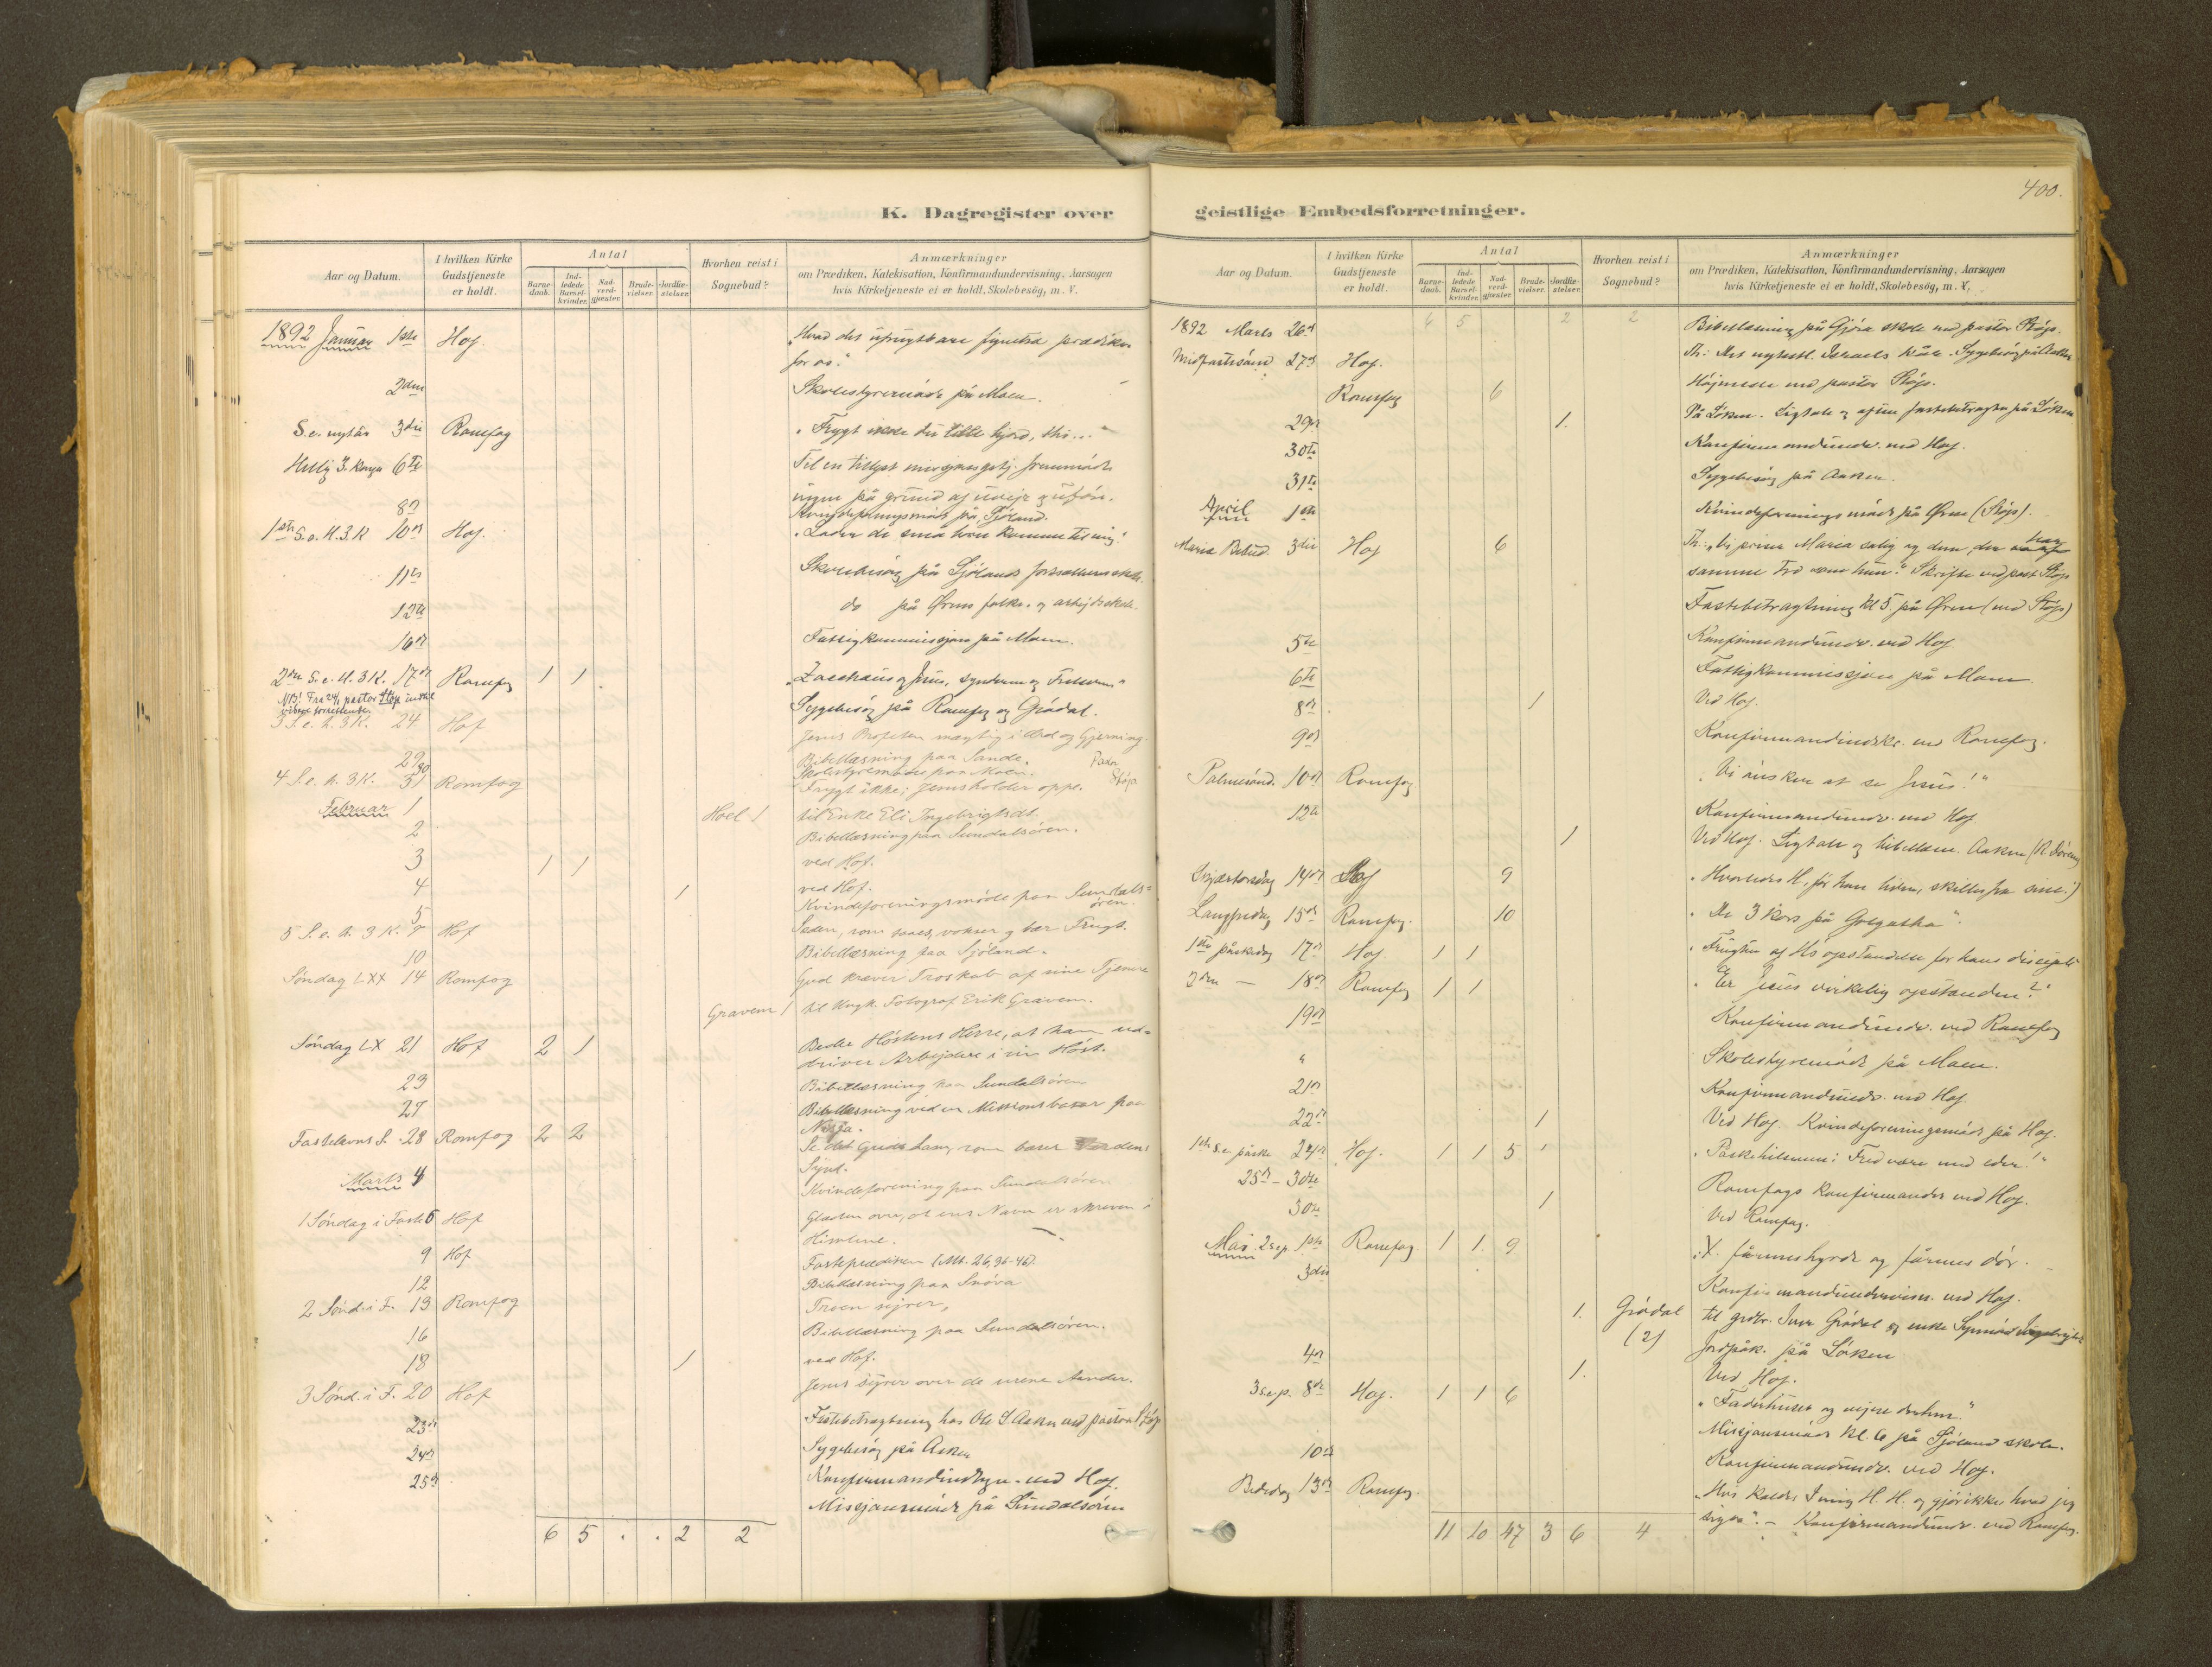 K. Dagregister over
Aar og Datum.
I hvilken Kirke Gudstjeneste er holdt.
Antal
Barne-daab.
Ind-ledede Barsel-kvinder.
Nad-verd-gjester.
Brude-vielser.
Jordfæ-stelser.
Hvorhen reist i Sognebud?
Anmærkninger
om Prædiken, Katekisation, Konfirmandundervisning, Aarsagen
hvis Kirketjeneste ei er holdt, Skolebesög, m. V.
1892 Januar 1ste Hof. "Hvad det ufrugtbare figentræ prædiker
for os."
2den Skolestyremöde på Moen.
S.e. nytår 3die Romfog "Frygt ikke du lille hjord, thi..."
Hellig 3 Konger 6te Til en tillyst missjonsgstj. fremmödte
ingen på grund af uvejr & uföre.
8de Kvindeforeningsmöde på Sjöland.
1ste S.e. H.3.K 10de Hof. "Lader de små börn komme til mig."
11te Skolebesög på Sjölands fortsættelsesskole.
12te do på Ørens folke- og arbejdsskole.
16de Fattigkommissjon på Moen.
2den S.e. H.3K. 17de Romfog 1 1 "Zacchæus og Jesus, synderen og Frelseren"
NB! Fra 24/1 pastor Stöp indtil
videre forrettende.
Sygebesög på Romfog og Grödal.
3 S.e. h. 3K. 24 Hof Jesus Profeten mægtig i Ord og Gjerning.
29 Bibellæsning paa Sande. Pastor
30 Skolestyremöde paa Moen. Stöp
4 S.e. h. 3K. 31 Romfog Frygt ikke; Jesus holder oppe.
Februar 1 Hoel 1 til Enke Eli Ingebrigtsdt.
2 Bibellæsning paa Sundalsören.
3 1 1 ved Hof.
4 1 ved Hof.
5 Kvindeforeningsmöde paa Sundals-
ören.
5 S.e. h. 3K. 7 Hof Sæden, som saaes, vokser og bær Frugt.
10 Bibellæsning paa Sjöland.
Söndag LXX 14 Romfog Gud kræver Troskab af sine Tjenere
Gravem 1 til Ungk. Fotograf Erik Gravem.
Söndag LX 21 Hof 2 1 Beder Höstens Herre, at han ud-
driver Arbejdere i sin Höst.
23 Bibellæsning paa Sundalsören
27 Bibellæsning ved en Missionsbasar paa
Nisja.
Fastelavns S. 28 Romfog 2 2 Se det Guds Lam, som bærer Verdens
Synd.
Marts 4 Kvindeforening paa Sundalsören
1 Söndag i Faste 6 Hof Glæden over, at ens Navn er skreven i
Himlene.
9 Hof Fasteprædiken (Mt. 26,36-46).
12 Bibellæsning paa Snöva
2 Sönd. i F. 13 Romfog Troen sejrer.
16 Bibellæsning paa Sundalsören.
18 1 ved Hof.
3 Sönd. i F. 20 Hof Jesus sejrer over de urene Aander.
23de Fastebetragtning hos Ole S. Aaker ved pastor Stöp
24de Sygebesög på Aaker
25de Konfirmandindtegn. ved Hof.
Missjonsmöde på Sundalsören
6 5 . . 2 2
400.
geistlige Embedsforretninger.
Aar og Datum.
I hvilken Kirke Gudstjeneste er holdt.
Antal
Barne-daab.
Ind-ledede Barsel-kvinder.
Nad-verd-gjester.
Brude-vielser.
Jordfæ-stelser.
Hvorhen reist i Sognebud?
Anmærkninger
om Prædiken, Katekisation, Konfirmandundervisning, Aarsagen
hvis Kirketjeneste ei er holdt, Skolebesög, m. V.
6 5 2 2
1892 Marts 26de Bibellæsning på Gjöra skole ved pastor Stöp.
Midfastesönd 27de Hof. Th: Det nytestl. Israels kår. Sygebesög på Aaker
Romfog 6 Höjmesse ved pastor Stöp.
29de 1. På Löken. Ligtale og aften fastebetragtn. på Löken
30te Konfirmandunderv. ved Hof.
31te Sygebesög på Aaker.
April 1ste Kvindeforeningsmöde på Ören (Stöp).
Maria Bebud. 3die Hof 6 Th: "Vi priser Maria salig og den, der har
samme tro som hun." Skrifte ved past. Stöp
Fastebetragtning kl 5 på Ören (ved Stöp)
5te Konfirmandunderv. ved Hof
6te Fattigkommissjon på Moen.
8de 1 Ved Hof.
9de Konfirmandindskr. ved Romfog.
Palmesönd. 10de Romfog "Vi önsker at se Jesus!"
12te Konfirmandunderv. ved Hof
1 Ved Hof. Ligtale og bibellæsn. Aaker
Skjærtorsdag 14de Hof 9 "Hvorledes H., för han lider, skilles fra sine!"
Langfredag 15de Romfog. 10 "De 3 kors på Golgatha".
1ste påskedag 17de Hof. 1 1 "Frugten af H's opstandelse for hans disciple"
2den — 18de Romfog 1 1 "Er Jesus virkelig opstanden?"
19de Konfirmandunderv. ved Romfog
" Skolestyremöde på Moen.
21de Konfirmandunderv. ved Hof.
22de 1 Ved Hof. Kvindeforeningsmöde på Hof.
1ste S.e. påske 24de Hof. 1 1 5 "Påskehilsenen: Fred være med eder!"
25de - 30te Romfogs konfirmander ved Hof.
30te 1 Ved Romfog.
Mai 2 s.e.p. 1ste Romfog 1 1. 9 "X. fårenes hyrde og fårenes dör."
3die Konfirmandundervisn. ved Hof.
1. Grödal til grdbr. Iver Grödal og enke
(2) Jordpåk. på Löken
4de 1. Ved Hof.
3 s.e.p. 8de Hof. 1 1 6 "Faderhuset og vejene derhen."
Missjonsmöde kl. 6 på Sjöland skole.
10de Konfirmandunderv. ved Hof.
Bededag 13de Romfog. "Hvi kalder I mig H. H. og gjör ikke, hvad jeg
siger". — Konfirmandunderv. ved Romfog.
11 10 47 3 6 4